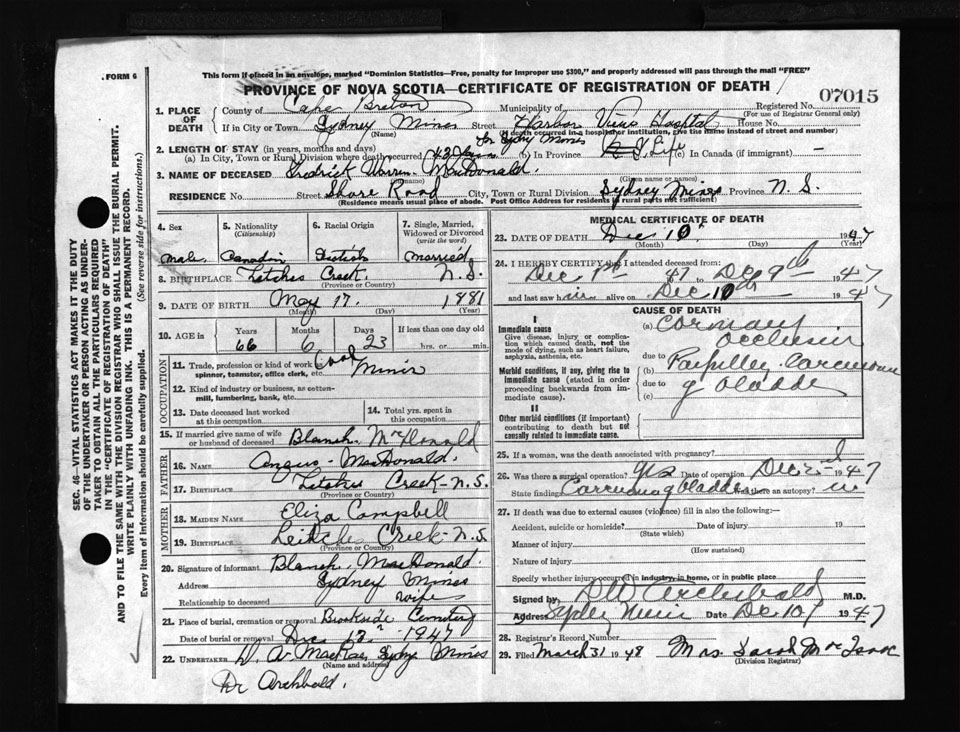 FORM 6
This form if placed in an envelope, marked "Dominion Statistics—Free, penalty for improper use $300," and properly addressed will pass through the mail "FREE"
PROVINCE OF NOVA SCOTIA—CERTIFICATE OF REGISTRATION OF DEATH
Registered No. 07015
(For use of Registrar General only)
1. PLACE OF DEATH County of Cape Breton Municipality of
If in City or Town Sydney Mines Street Harbor View Hospital House No.
(Name) (If death occurred in a hospital or institution, give the name instead of street and number)
2. LENGTH OF STAY (in years, months and days) Sydney Mines
(a) In City, Town or Rural Division where death occurred 43 years (b) In Province Life (c) In Canada (if immigrant) —
3. NAME OF DECEASED Fredrick Warren MacDonald.
(Surname) (Given name or names)
RESIDENCE No. Street Shore Road City, Town or Rural Division Sydney Mines Province N. S.
(Residence means usual place of abode. Post Office Address for residents in rural parts not sufficient)
4. Sex 5. Nationality (Citizenship) 6. Racial Origin 7. Single, Married, Widowed or Divorced (write the word)
male Canadian Scotish married
8. BIRTHPLACE Leitches Creek. N. S.
(Province or Country)
9. DATE OF BIRTH May 17. 1881
(Month) (Day) (Year)
10. AGE in Years Months Days If less than one day
66 6 23 hrs. or min.
OCCUPATION
11. Trade, profession or kind of work as spinner, teamster, office clerk, etc. Coal Miner
12. Kind of industry or business, as cotton-mill, lumbering, bank, etc.
13. Date deceased last worked at this occupation
14. Total yrs. spent in this occupation
15. If married give name of wife or husband of deceased Blanch McDonald
FATHER
16. NAME Angus MacDonald.
17. BIRTHPLACE Leitches Creek - N.S.
(Province or Country)
MOTHER
18. MAIDEN NAME Eliza Campbell
19. BIRTHPLACE Leitches Creek - N.S.
(Province or Country)
20. Signature of informant Blanch MacDonald.
Address Sydney Mines
Relationship to deceased wife
21. Place of burial, cremation or removal Brookside Cemetery
Date of burial or removal Dec 12 1947
22. UNDERTAKER D. A. MacRae, Sydney Mines
(Name and address)
Dr Archbald.
MEDICAL CERTIFICATE OF DEATH
23. DATE OF DEATH Dec 10 1947
(Month) (Day) (Year)
24. I HEREBY CERTIFY that I attended deceased from:
Dec 1st 47 to Dec 9th 1947
and last saw him alive on Dec 10th 1947
CAUSE OF DEATH
I
Immediate cause
Give disease, injury or complication which caused death, not the mode of dying, such as heart failure, asphyxia, asthenia, etc.
(a) Coronary Occlusion
due to
Morbid conditions, if any, giving rise to immediate cause (stated in order proceeding backwards from immediate cause).
(b) Papillary Carcinoma
due to of bladder
(c)
II
Other morbid conditions (if important) contributing to death but not causally related to immediate cause.
25. If a woman, was the death associated with pregnancy?
26. Was there a surgical operation? yes Date of operation Dec 2nd 1947
State findings Carcinoma of bladder Was there an autopsy? no
27. If death was due to external causes (violence) fill in also the following:—
Accident, suicide or homicide? Date of injury 19
(State which)
Manner of injury
(How sustained)
Nature of injury
Specify whether injury occurred in industry, in home, or in public place
Signed by D W Archibald M.D.
Address Sydney Mines Date Dec 10 1947
28. Registrar's Record Number
29. Filed March 31 1948 Mrs. Sarah McIsaac
(Division Registrar)
SEC. 46—VITAL STATISTICS ACT MAKES IT THE DUTY
OF THE UNDERTAKER OR PERSON ACTING AS UNDER-
TAKER TO OBTAIN ALL THE PARTICULARS REQUIRED
IN THE "CERTIFICATE OF REGISTRATION OF DEATH"
AND TO FILE THE SAME WITH THE DIVISION REGISTRAR WHO SHALL ISSUE THE BURIAL PERMIT.
WRITE PLAINLY WITH UNFADING INK. THIS IS A PERMANENT RECORD.
Every item of information should be carefully supplied. (See reverse side for instructions.)